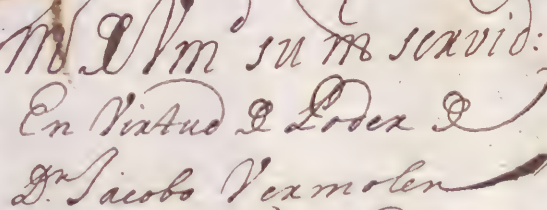 su m servid:
En Virtud de Poder de
Dn. Jacobo Vermolen